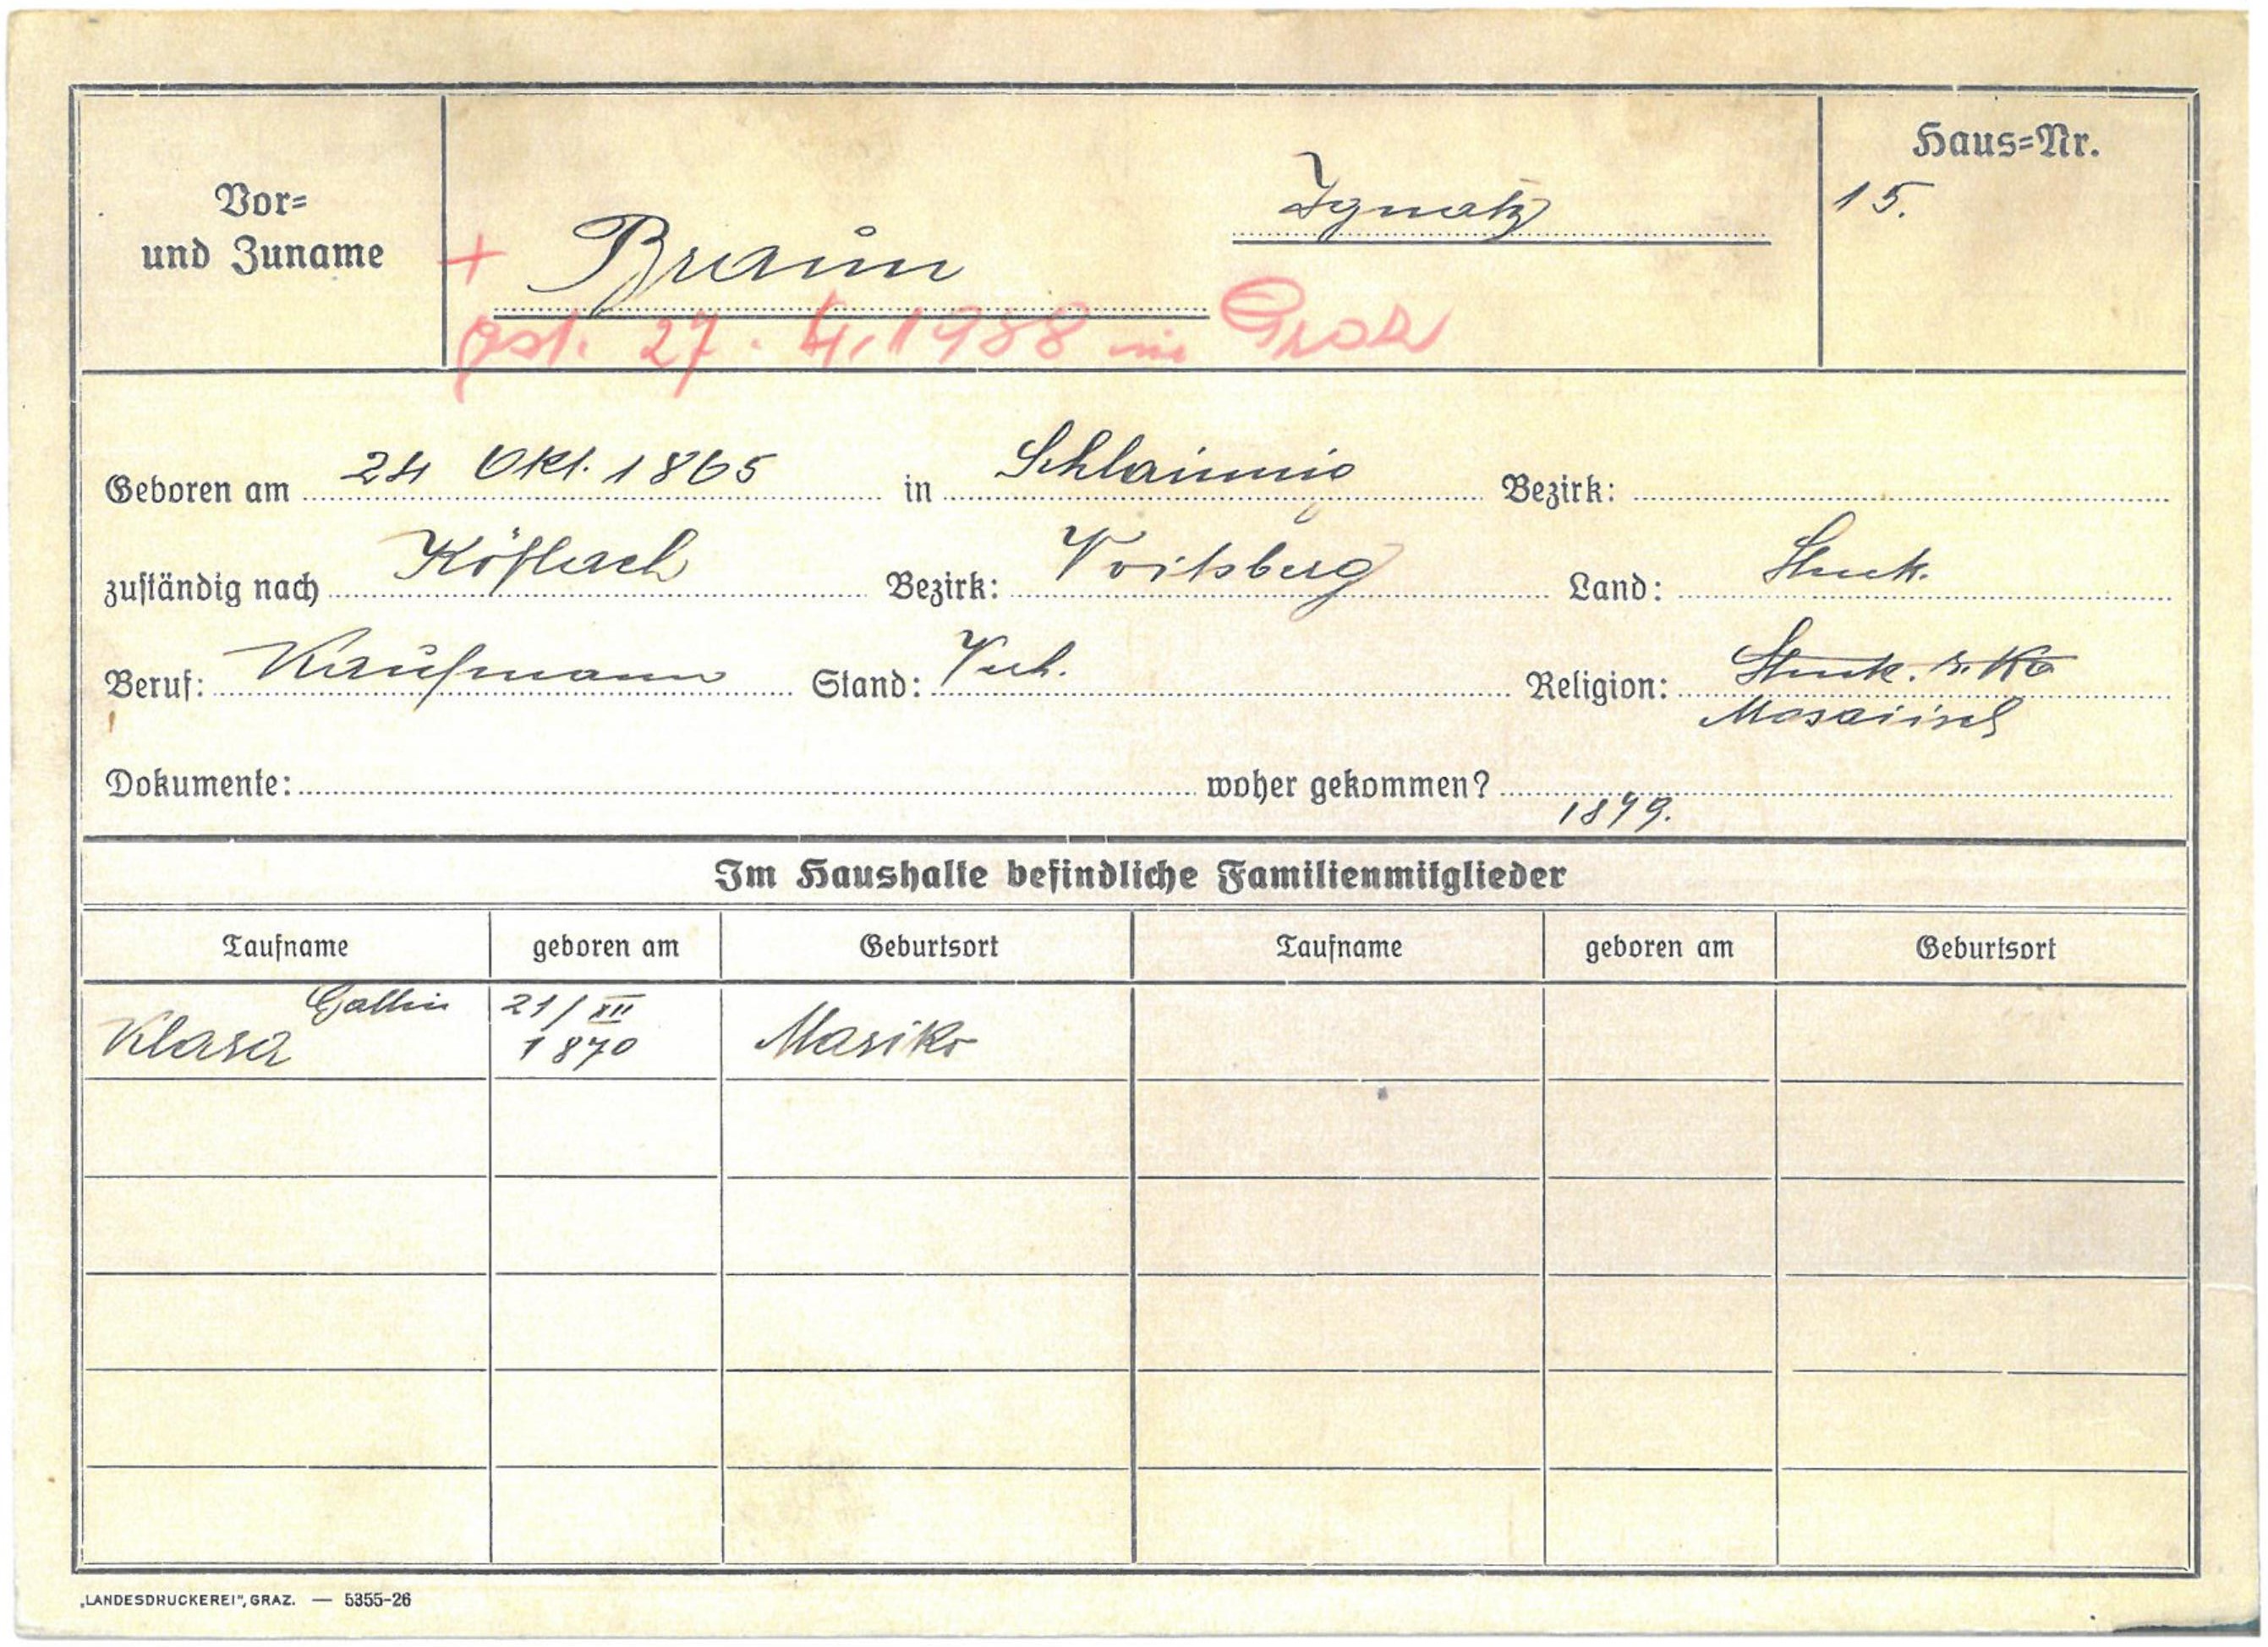 Vor=
und Zuname
Haus=Nr.
15.
Ignatz
+ Braun
gest. 27. 4. 1938 in Graz
Geboren am 24 Okt. 1865 in Schlaining Bezirk:
zuständig nach Köflach Bezirk: Voitsberg Land: Stmk.
Beruf: Kaufmann Stand: Verh. Religion: Stmk. r. Kö
Mosaiisch
Dokumente: woher gekommen?
1879.
Im Haushalte befindliche Familienmitglieder
Taufname geboren am Geburtsort Taufname geboren am Geburtsort
Gattin 21/XII
Klara 1870 Mariko
„LANDESDRUCKEREI", GRAZ. — 5355-26